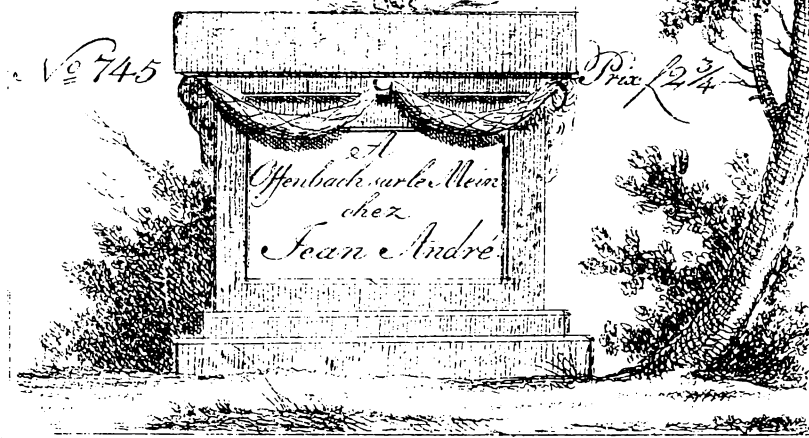 No 745 Prix f 2 3/4
A
Offenbach sur le Mein
chez
Jean André